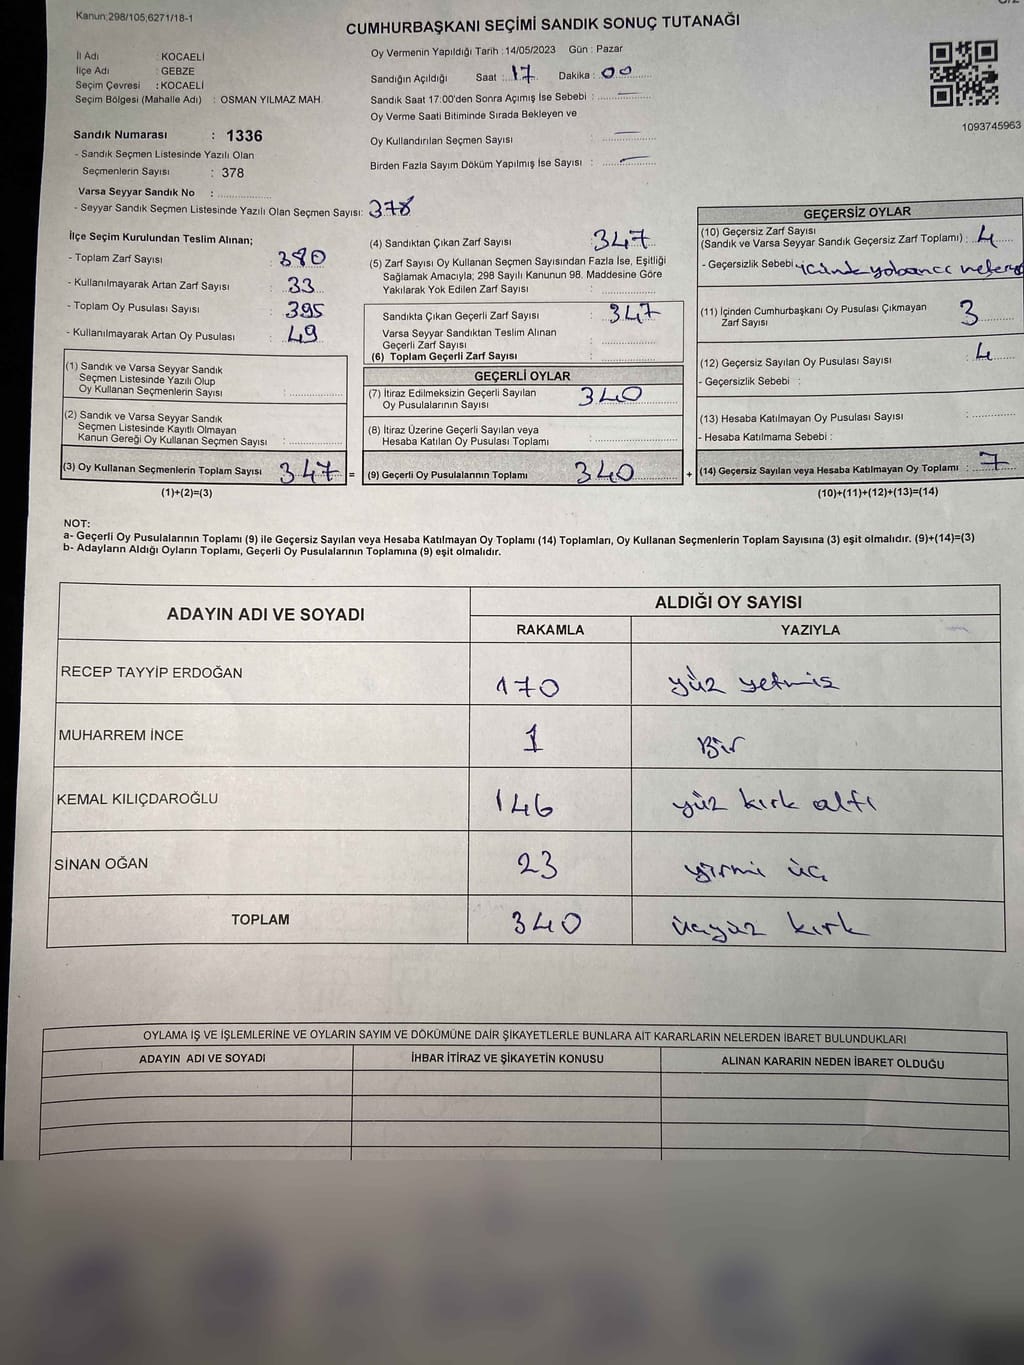 Kanun:298/105;6271/18-1
CUMHURBAŞKANI SEÇİMİ SANDIK SONUÇ TUTANAĞI
İl Adı : KOCAELİ
İlçe Adı : GEBZE
Seçim Çevresi : KOCAELİ
Seçim Bölgesi (Mahalle Adı) : OSMAN YILMAZ MAH.
Sandık Numarası : 1336
- Sandık Seçmen Listesinde Yazılı Olan
Seçmenlerin Sayısı : 378
Varsa Seyyar Sandık No :
- Seyyar Sandık Seçmen Listesinde Yazılı Olan Seçmen Sayısı: 378
Oy Vermenin Yapıldığı Tarih :14/05/2023 Gün : Pazar
Sandığın Açıldığı Saat : 17 Dakika : 00
Sandık Saat 17:00'den Sonra Açımış İse Sebebi : —
Oy Verme Saati Bitiminde Sırada Bekleyen ve
Oy Kullandırılan Seçmen Sayısı : —
Birden Fazla Sayım Döküm Yapılmış İse Sayısı : —
1093745963
İlçe Seçim Kurulundan Teslim Alınan;
- Toplam Zarf Sayısı : 380
- Kullanılmayarak Artan Zarf Sayısı : 33
- Toplam Oy Pusulası Sayısı : 395
- Kullanılmayarak Artan Oy Pusulası : 49
(1) Sandık ve Varsa Seyyar Sandık
Seçmen Listesinde Yazılı Olup
Oy Kullanan Seçmenlerin Sayısı :
(2) Sandık ve Varsa Seyyar Sandık
Seçmen Listesinde Kayıtlı Olmayan
Kanun Gereği Oy Kullanan Seçmen Sayısı :
(3) Oy Kullanan Seçmenlerin Toplam Sayısı 347 =
(1)+(2)=(3)
(4) Sandıktan Çıkan Zarf Sayısı : 347
(5) Zarf Sayısı Oy Kullanan Seçmen Sayısından Fazla İse, Eşitliği
Sağlamak Amacıyla; 298 Sayılı Kanunun 98. Maddesine Göre
Yakılarak Yok Edilen Zarf Sayısı :
Sandıkta Çıkan Geçerli Zarf Sayısı : 347
Varsa Seyyar Sandıktan Teslim Alınan
Geçerli Zarf Sayısı :
(6) Toplam Geçerli Zarf Sayısı :
GEÇERLİ OYLAR
(7) İtiraz Edilmeksizin Geçerli Sayılan
Oy Pusulalarının Sayısı 340
(8) İtiraz Üzerine Geçerli Sayılan veya
Hesaba Katılan Oy Pusulası Toplamı :
(9) Geçerli Oy Pusulalarının Toplamı 340 +
GEÇERSİZ OYLAR
(10) Geçersiz Zarf Sayısı
(Sandık ve Varsa Seyyar Sandık Geçersiz Zarf Toplamı) : 4
- Geçersizlik Sebebi : içinde yabancı
(11) İçinden Cumhurbaşkanı Oy Pusulası Çıkmayan
Zarf Sayısı 3
(12) Geçersiz Sayılan Oy Pusulası Sayısı : 4
- Geçersizlik Sebebi :
(13) Hesaba Katılmayan Oy Pusulası Sayısı :
- Hesaba Katılmama Sebebi :
(14) Geçersiz Sayılan veya Hesaba Katılmayan Oy Toplamı : 7
(10)+(11)+(12)+(13)=(14)
NOT:
a- Geçerli Oy Pusulalarının Toplamı (9) ile Geçersiz Sayılan veya Hesaba Katılmayan Oy Toplamı (14) Toplamları, Oy Kullanan Seçmenlerin Toplam Sayısına (3) eşit olmalıdır. (9)+(14)=(3)
b- Adayların Aldığı Oyların Toplamı, Geçerli Oy Pusulalarının Toplamına (9) eşit olmalıdır.
ADAYIN ADI VE SOYADI
ALDIĞI OY SAYISI
RAKAMLA YAZIYLA
RECEP TAYYİP ERDOĞAN 170 yüz yetmiş
MUHARREM İNCE 1 Bir
KEMAL KILIÇDAROĞLU 146 yüz kırk altı
SİNAN OĞAN 23 yirmi üç
TOPLAM 340 üçyüz kırk
OYLAMA İŞ VE İŞLEMLERİNE VE OYLARIN SAYIM VE DÖKÜMÜNE DAİR ŞİKAYETLERLE BUNLARA AİT KARARLARIN NELERDEN İBARET BULUNDUKLARI
ADAYIN ADI VE SOYADI İHBAR İTİRAZ VE ŞİKAYETİN KONUSU ALINAN KARARIN NEDEN İBARET OLDUĞU